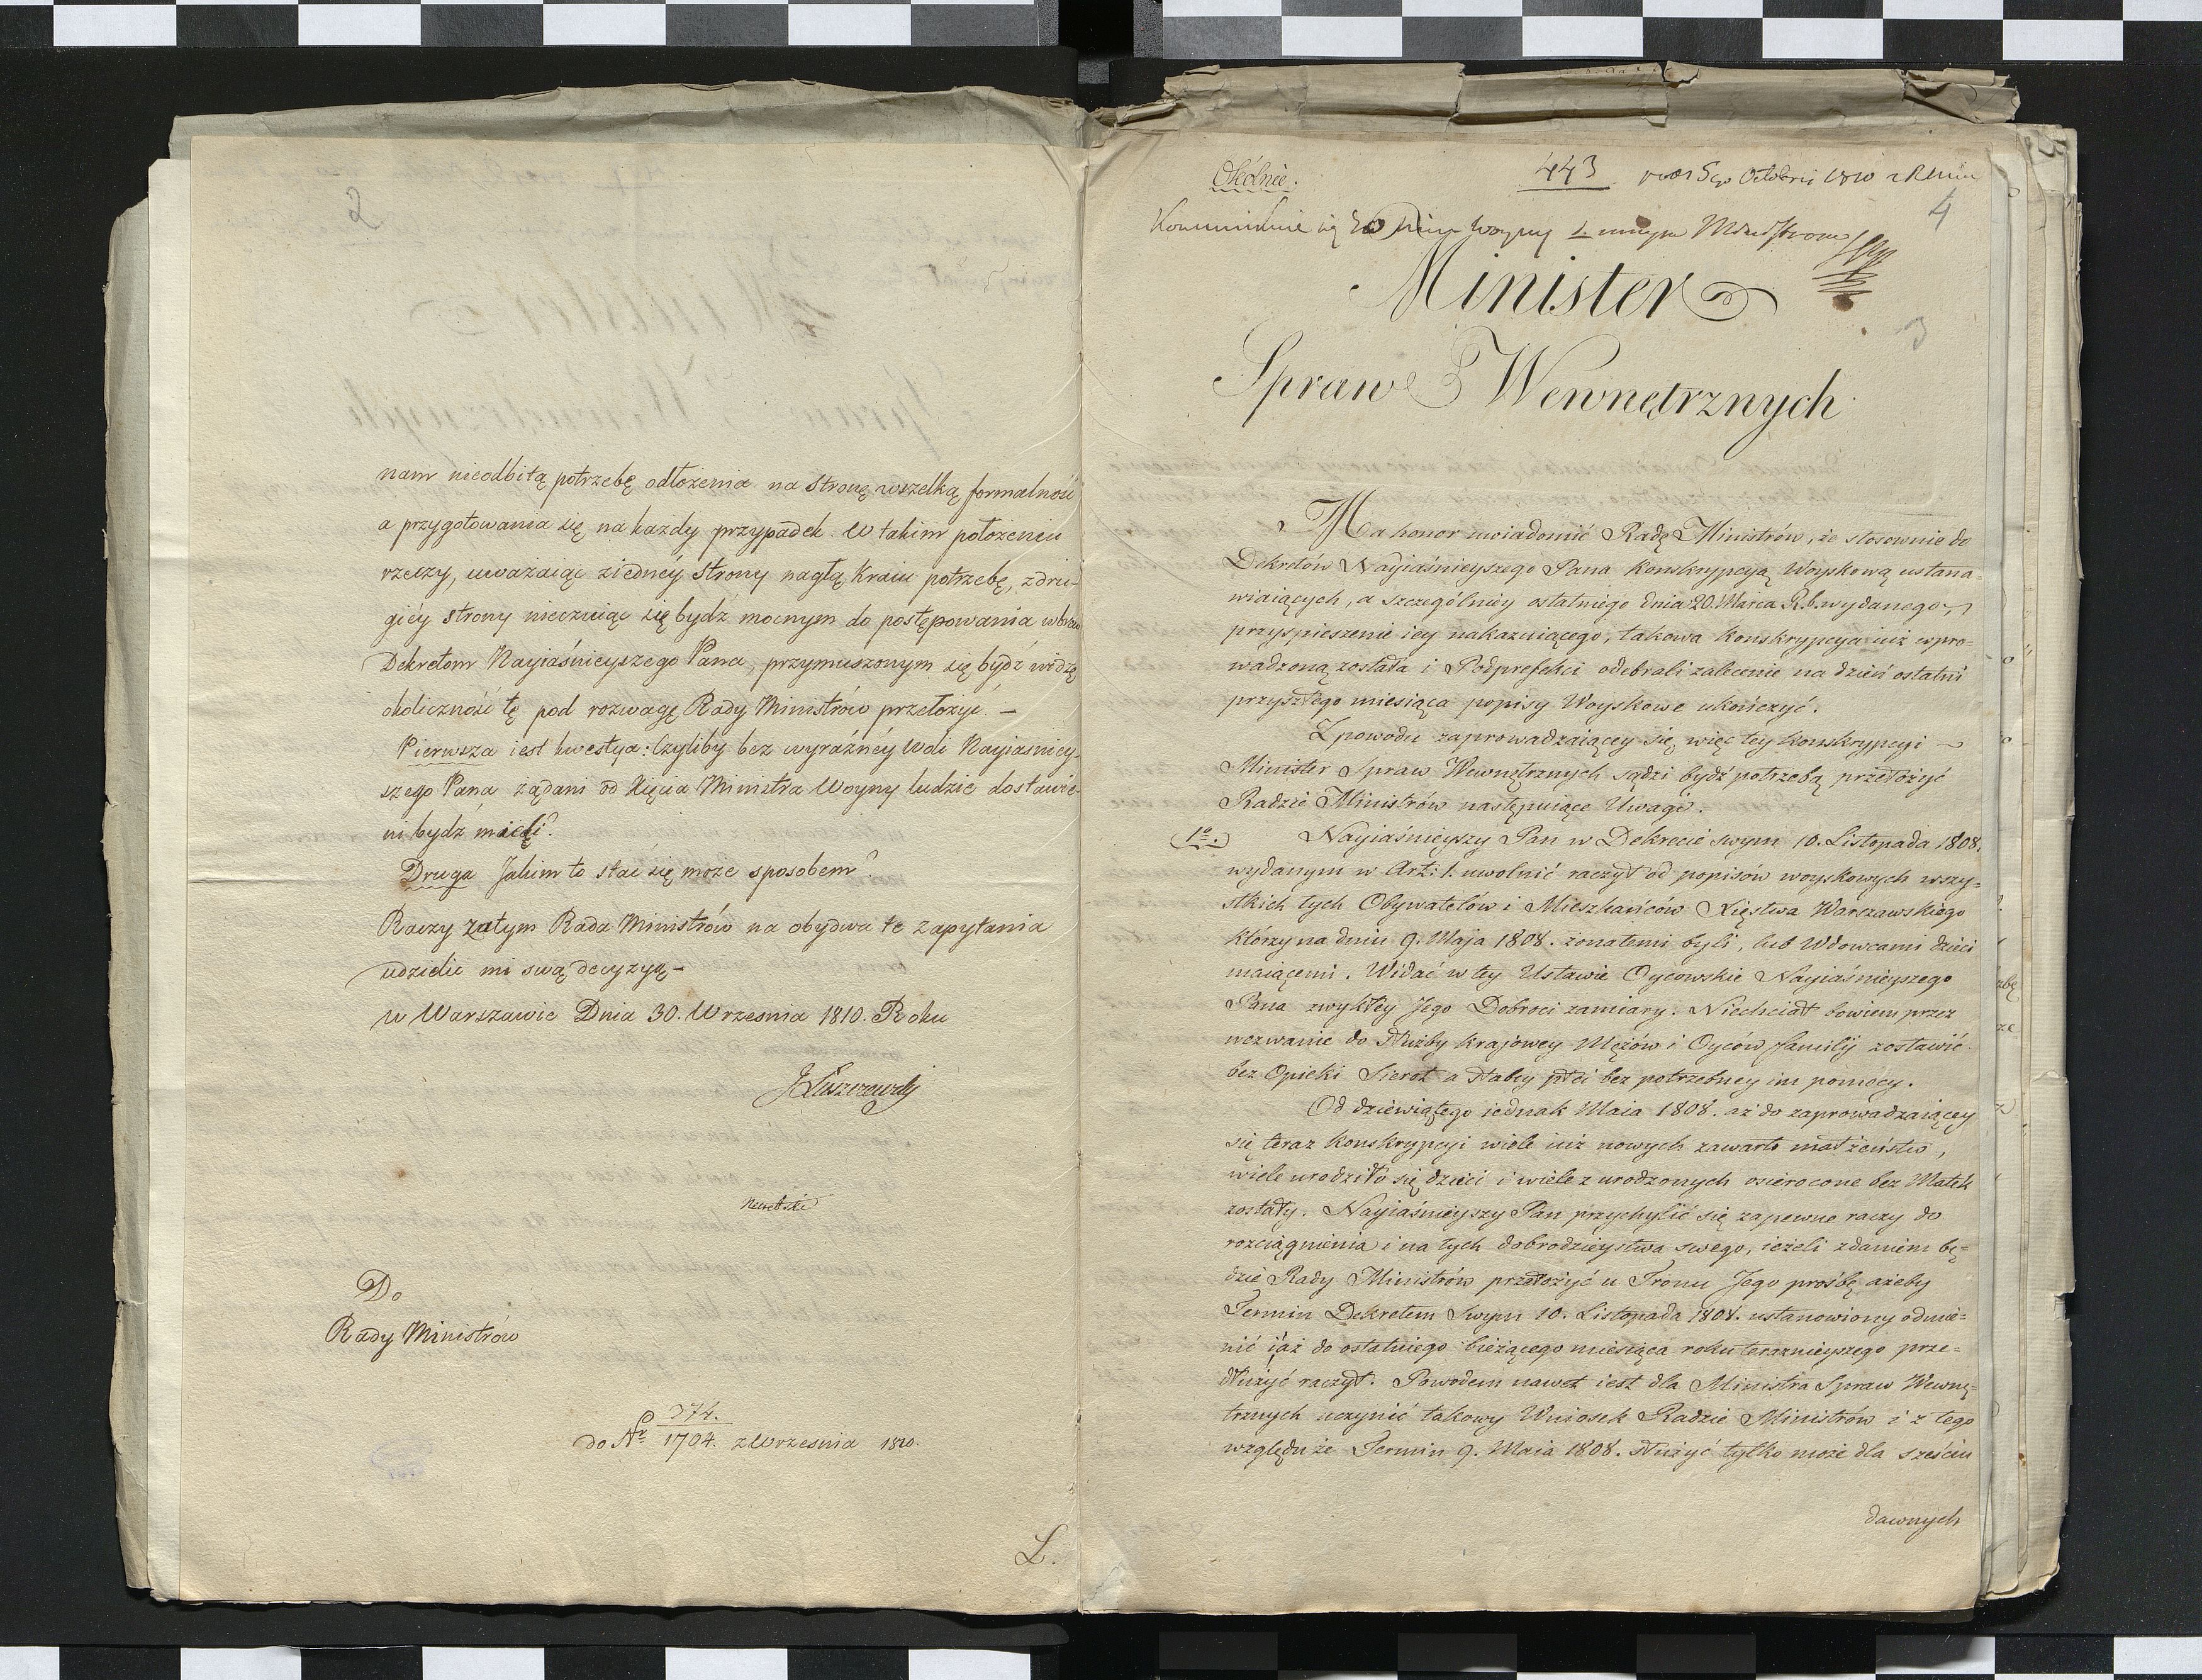 2
nam nieodbitą potrzebę odłożenia na stronę wszelką formalność
a przygotowania się na każdy przypadek. W takim położeniu
rzeczy, uważaiąc ziednéy strony nagłą kraiu potrzebę, zdru-
giéy strony nieczuiąc się bydź mocnym do postępowania wbrew
Dekretom Nayiaśnieyszego Pana, przymuszonym się bydź widzę
okoliczność tę pod rozwagę Rady Ministrów przełożyć. —
Pierwsza iest kwestya: Czyliby bez wyraźnéy woli Nayiaśniey-
szego Pana żądani od Xięcia Ministra Woyny ludzie dostawie-
ni bydź mieli?
Druga Jakim to stać się może sposobem?
Raczy zatym Rada Ministrów na obydwa te zapytania
udzielić mi swą decyzyą —
w Warszawie Dnia 30. Września 1810. Roku
J Łuszczewski
Do
Rady Ministrów
374.
do Nr 1704. z Września 1810.
L.
Okólnie.
443 Octobris 1810
4
Woyny Ministrom
Minister
3
Spraw Wewnętrznych
Ma honor uwiadomić Radę Ministrów, że stosownie do
Dekretów Nayiaśnieyszego Pana konskrypcyą Woyskową ustana-
wiaiących, a szczególniey ostatniego dnia 20. Marca R. b. wydanego,
przyspieszenie iey nakazuiącego, takowa konskrypcya iuż wpro-
wadzoną została i Podprefekci odebrali zalecenie na dzień ostatni
przyszłego miesiąca popisy Woyskowe ukończyć.
Z powodu zaprowadzaiącey się więc tey konskrypcyi —
Minister Spraw Wewnętrznych sądzi bydź potrzebą przełożyć
Radzie Ministrów następuiące Uwagi.
1o. Nayiaśnieyszy Pan w Dekrecie swym 10. Listopada 1808.
wydanym w Art: 1. uwolnić raczył od popisów woyskowych wszy-
stkich tych Obywatelów i Mieszkańców Xięstwa Warszawskiego
którzy na dniu 9. Maja 1808. żonatemi byli, lub Wdowcami dzieci
maiącemi. Widać w tey Ustawie Oycowskie Nayiaśnieyszego
Pana zwykłey Jego Dobroci zamiary. Niechciał bowiem przez
wezwanie do służby krajowey Mężów i Oyców familij zostawić
bez Opieki Sierot a słabey płci bez potrzebney im pomocy.
Od dziewiątego iednak Maia 1808. aż do zaprowadzaiącey
się teraz konskrypcyi wiele iuż nowych zawarto małżeństw,
wiele urodziło się dzieci i wiele z urodzonych osierocone bez Matek
zostały. Nayiaśnieyszy Pan przychylić się zapewne raczy do
rozciągnienia i na tych dobrodzieystwa swego, ieżeli zdaniem bę-
dzie Rady Ministrów przełożyć u Tronu Jego prośbę ażeby
Termin Dekretem Swym 10. Listopada 1808. ustanowiony odmie-
nić i aż do ostatniego bieżącego miesiąca roku teraznieyszego prze-
dłużyć raczył. Powodem nawet iest dla Ministra Spraw Wewnę-
trznych uczynić takowy Wniosek Radzie Ministrów i z tego
względu że Termin 9. Maia 1808. służyć tylko może dla sześciu
dawnych